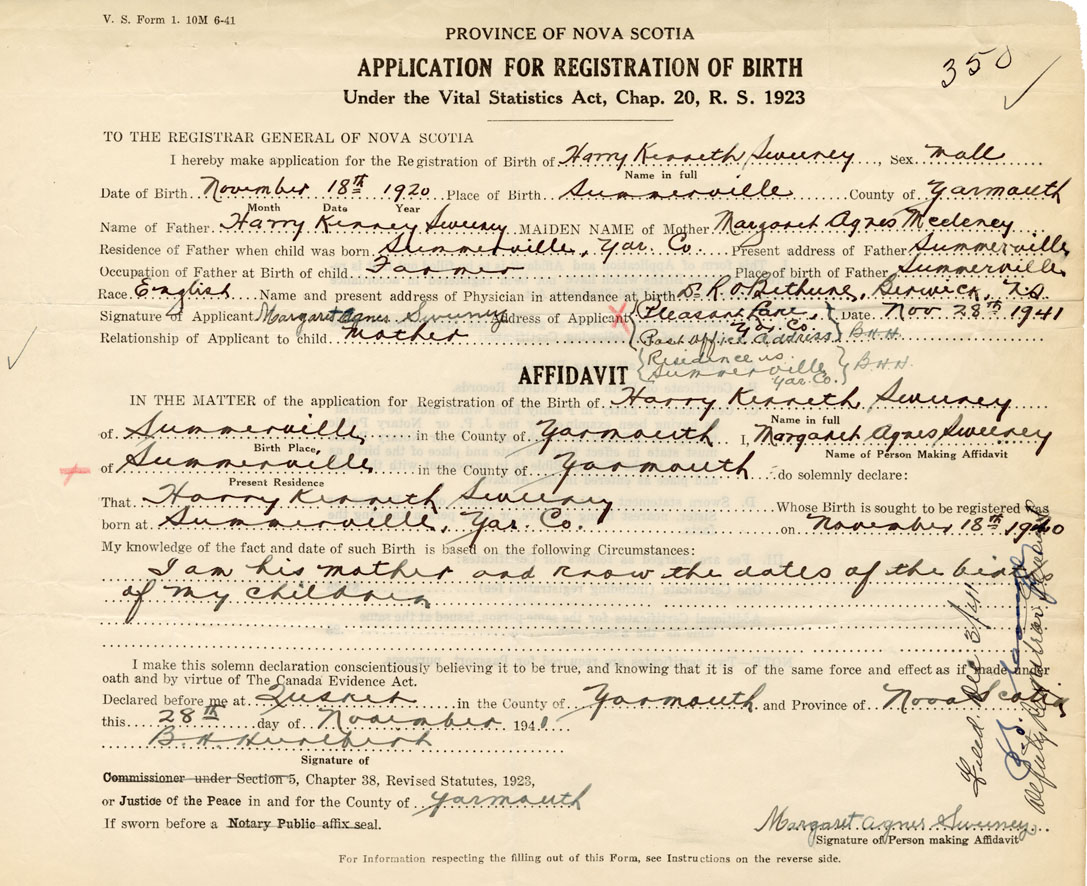 V. S. Form 1. 10M 6-41
PROVINCE OF NOVA SCOTIA
350
APPLICATION FOR REGISTRATION OF BIRTH
Under the Vital Statistics Act, Chap. 20, R. S. 1923
TO THE REGISTRAR GENERAL OF NOVA SCOTIA
I hereby make application for the Registration of Birth of Harry Kenneth Sweeney, Sex male
Name in full
Date of Birth November 18th 1920 Place of Birth Summerville County of Yarmouth
Month Date Year
Name of Father Harry Kenney Sweeney MAIDEN NAME of Mother Margaret Agnes
Residence of Father when child was born Summerville, Yar. Co. Present address of Father Summerville
Occupation of Father at Birth of child Farmer Place of birth of Father Summerville
Race English Name and present address of Physician in attendance at birth Dr R O Bethune, Berwick, N.S.
Signature of Applicant Margaret Agnes Sweeney Address of Applicant X Pleasant Lake, Yar. Co. Date Nov 28th 1941
Relationship of Applicant to child mother Post Office Address B.H.H.
Residence is Summerville Yar. Co. B.H.H.
AFFIDAVIT
IN THE MATTER of the application for Registration of the Birth of Harry Kenneth Sweeney
Name in full
of Summerville in the County of Yarmouth I, Margaret Agnes Sweeney
Birth Place, Name of Person Making Affidavit
of Summerville in the County of Yarmouth do solemnly declare:
Present Residence
That Harry Kenneth Sweeney Whose Birth is sought to be registered was
born at Summerville, Yar. Co. on November 18th 1920
My knowledge of the fact and date of such Birth is based on the following Circumstances:
I am his mother and know the dates of the
of my children
I make this solemn declaration conscientiously believing it to be true, and knowing that it is of the same force and effect as if made under
oath and by virtue of The Canada Evidence Act.
Declared before me at Tusket in the County of Yarmouth and Province of Nova Scotia
this 28th day of November 1941
B. H.
Signature of
Commissioner under Section 5, Chapter 38, Revised Statutes, 1923,
or Justice of the Peace in and for the County of Yarmouth
If sworn before a Notary Public affix seal.
Margaret Agnes Sweeney
Signature of Person making Affidavit
For Information respecting the filling out of this Form, see Instructions on the reverse side.
Filed Dec 3/41
Deputy Registrar General